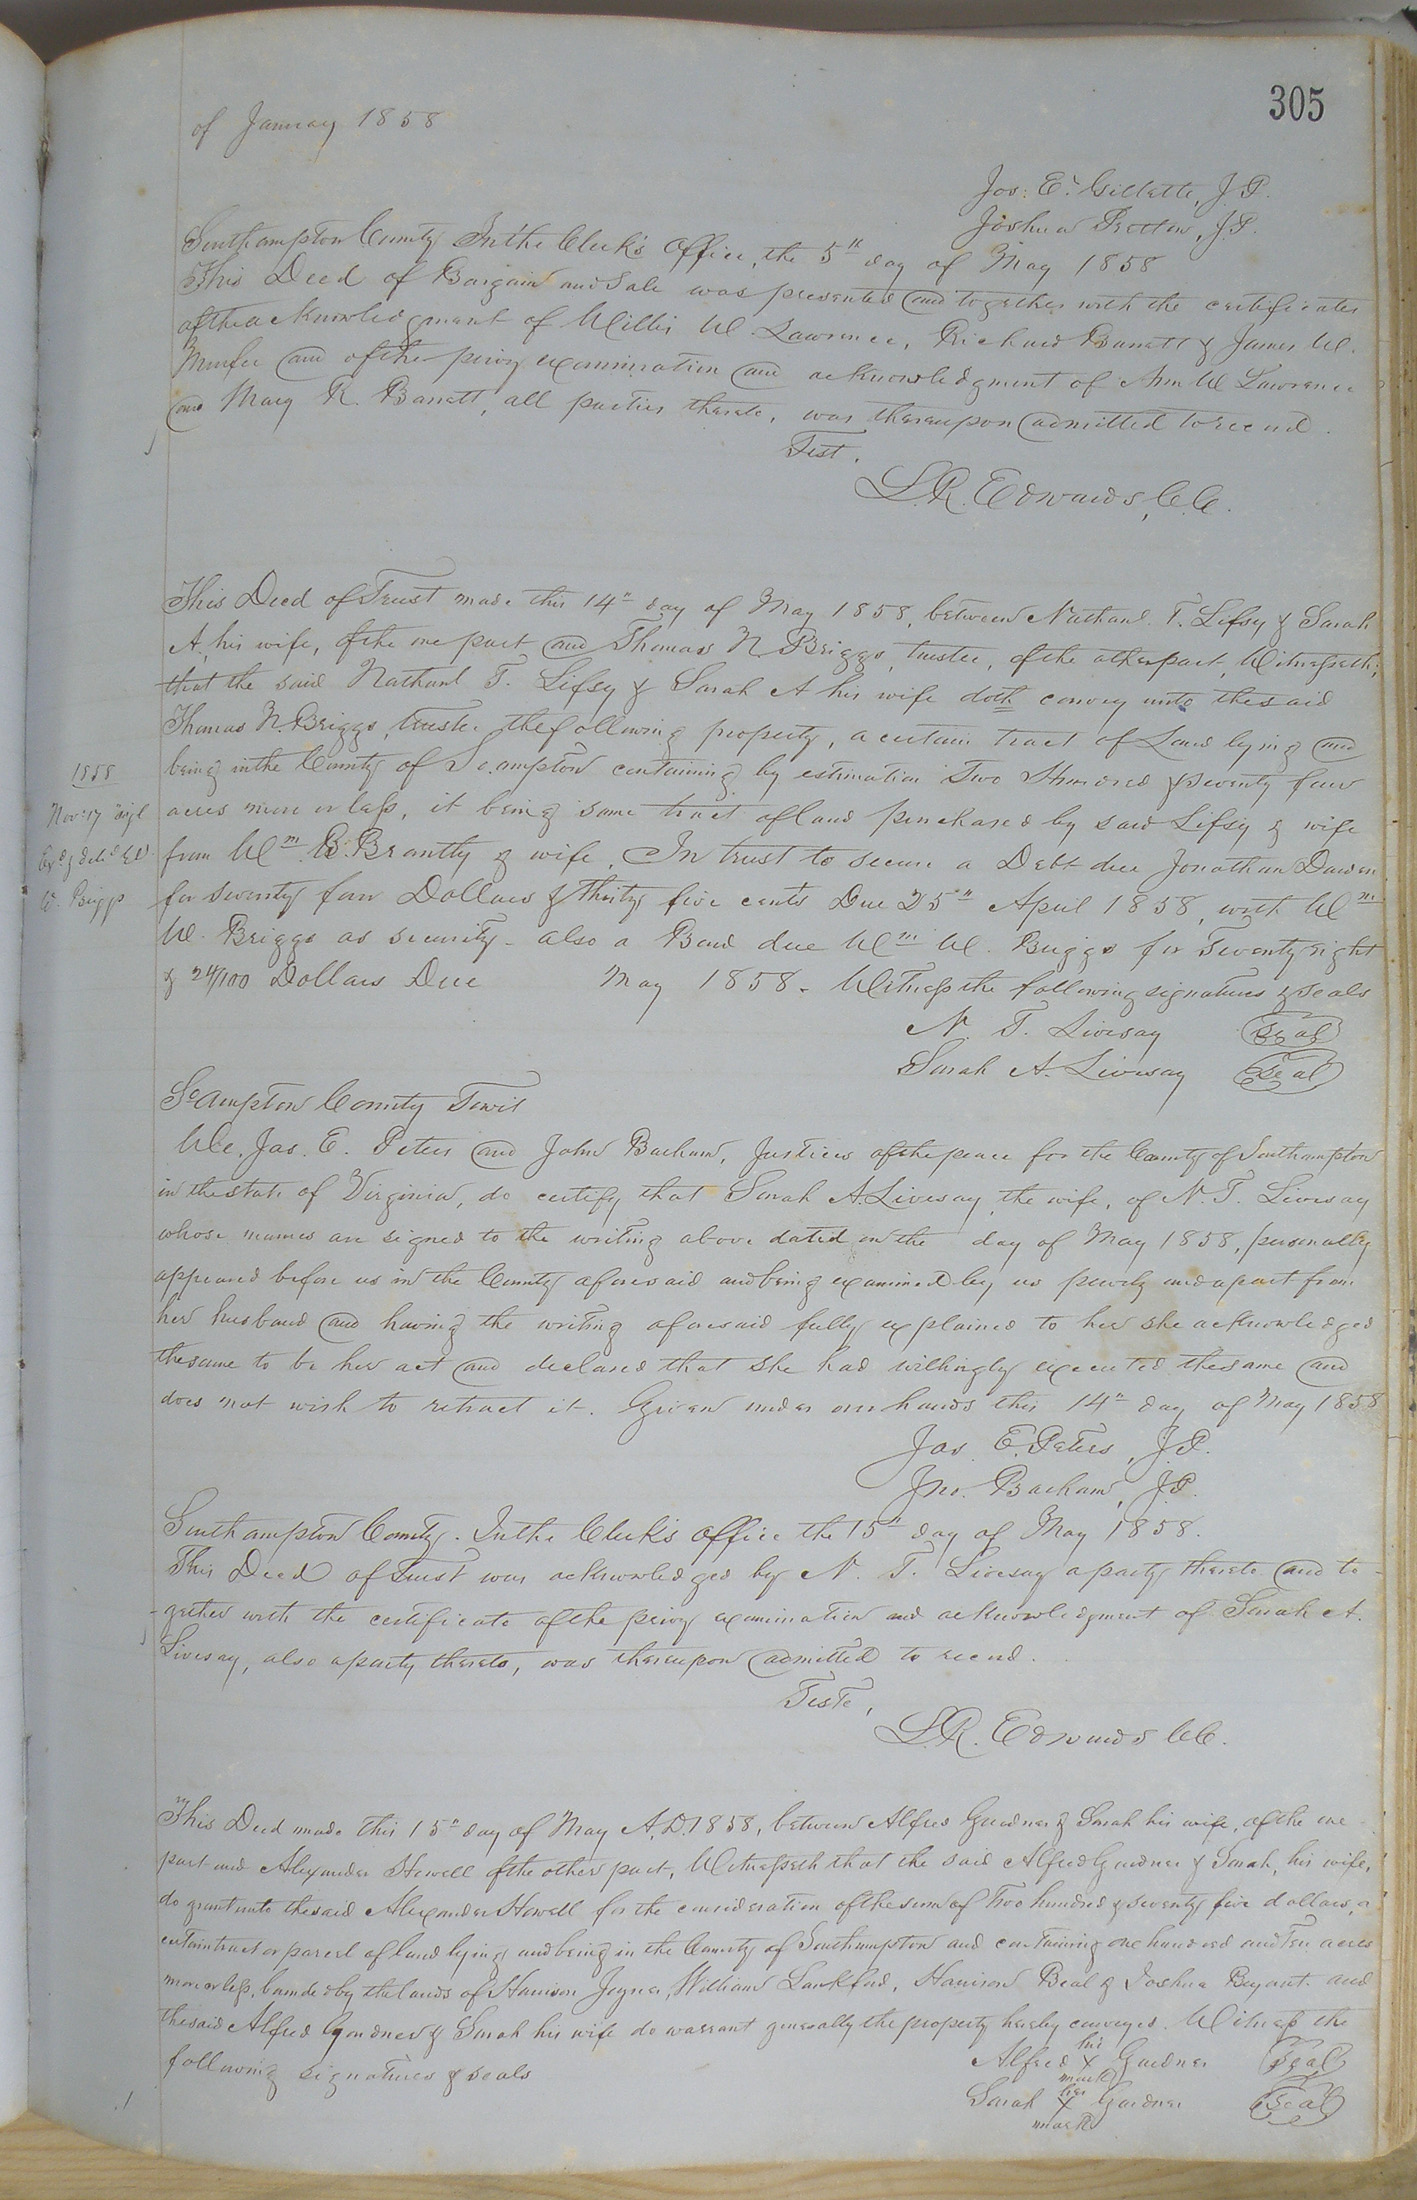 305
of January 1858
Jos: E. Gillette, J.P.
Joshua Pretlow, J.P.
Southampton County In the Clerk's Office, the 5th day of May 1858
This Deed of Bargain and Sale was presented and together with the certificates
of the acknowledgment of Willis W Lawrence, Richard Barrett & James W.
Murfee and of the privy examination and acknowledgment of Ann W Lawrence
and Mary R. Barrett, all parties thereto, was thereupon admitted to record.
Test.
L.R. Edwards, C.C.
This Deed of Trust made this 14th day of May 1858, between Nathanl. T. Lifsy & Sarah
A, his wife, of the one part and Thomas N. Briggs, trustee, of the other part, Witnesseth;
that the said Nathanl T. Lifsy & Sarah A his wife doth convey unto the said
Thomas N. Briggs, trustee the following property, a certain tract of Land lying and
being in the County of So.ampton containing by estimation Two Hundred & seventy four
acres more or less, it being same tract of land purchased by said Lifsy & wife
from Wm. B. Brantly & wife. In trust to secure a Debt due Jonathan Darden
for seventy four Dollars & thirty five cents Due 25th April 1858, with Wm
W. Briggs as security - also a Bond due Wm W. Briggs for Seventy eight
& 24/100 Dollars Due May 1858. Witness the following signatures & seals
1858
Nov: 17
Exd. & deld.
W. Briggs
N. T. Livesay Seal
Sarah A. Livesay Seal
So ampton County Towit
We, Jas. E. Peters and John Barham, Justices of the peace for the County of Southampton
in the state of Virginia, do certify that Sarah A. Livesay, the wife, of N. T. Livesay
whose names are signed to the writing above dated on the day of May 1858, personally
appeared before us in the County aforesaid and being examined by us privily and apart from
her husband and having the writing aforesaid fully explained to her she acknowledged
the same to be her act and declared that she had willingly executed the same and
does not wish to retract it. Given under our hands this 14th day of May 1858
Jas E. Peters, J.P.
Jno. Barham, J.P.
Southampton County. In the Clerk's Office the 15th day of May 1858.
This Deed of Trust was acknowledged by N. T. Livesay a party thereto and to-
-gether with the certificate of the privy examination and acknowledgment of Sarah A.
Livesay, also a party thereto, was thereupon admitted to record.
Teste,
L.R. Edwards CC.
This Deed made this 15th day of May A.D. 1858, between Alfred Gardner & Sarah his wife, of the one
part and Alexander Howell of the other part, Witnesseth that the said Alfred Gardner & Sarah, his wife,
do grant unto the said Alexander Howell for the consideration of the sum of Two hundred & seventy five dollars, a
certain tract or parcel of land lying and being in the County of Southampton and containing one hundred and Ten acres
more or less, bounded by the lands of Harrison Joyner, William Lankford, Harrison Beal & Joshua Bryant. and
the said Alfred Gardner & Sarah his wife do warrant generally the property hereby conveyed. Witness the
following signatures & seals
Alfred his X mark Gardner Seal
Sarah her X mark Gardner Seal